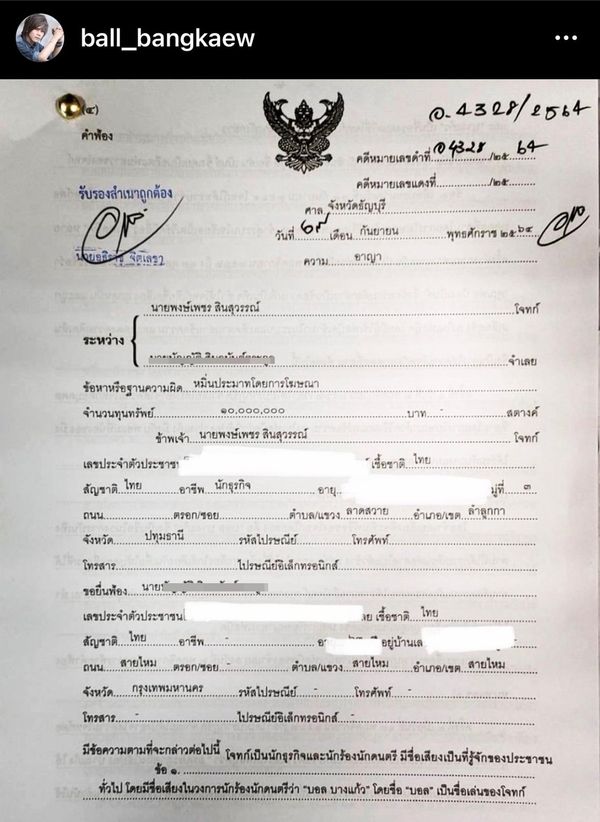 ball_bangkaew
(๔)
คำฟ้อง
อ-4328/2564
คดีหมายเลขดำที่ อ4328 /๒๕ 64
คดีหมายเลขแดงที่ /๒๕
รับรองสำเนาถูกต้อง
ศาล จังหวัดธัญบุรี
วันที่ เดือน กันยายน พุทธศักราช ๒๕ ๖๔
ความ อาญา
นายพงษ์เพชร สินสุวรรณ์ โจทก์
ระหว่าง
จำเลย
ข้อหาหรือฐานความผิด หมิ่นประมาทโดยการโฆษณา
จำนวนทุนทรัพย์ ๑๐,๐๐๐,๐๐๐ บาท - สตางค์
ข้าพเจ้า นายพงษ์เพชร สินสุวรรณ์ โจทก์
เลขประจำตัวประชาชน เชื้อชาติ ไทย
สัญชาติ ไทย อาชีพ นักธุรกิจ อายุ หมู่ที่ ๓
ถนน ตรอก/ซอย ตำบล/แขวง ลาดสวาย อำเภอ/เขต ลำลูกกา
จังหวัด ปทุมธานี รหัสไปรษณีย์ โทรศัพท์
โทรสาร ไปรษณีย์อิเล็กทรอนิกส์
ขอยื่นฟ้อง
เลขประจำตัวประชาชน เชื้อชาติ ไทย
สัญชาติ ไทย อาชีพ - อยู่บ้านเล
ถนน สายไหม ตรอก/ซอย - ตำบล/แขวง สายไหม อำเภอ/เขต สายไหม
จังหวัด กรุงเทพมหานคร รหัสไปรษณีย์ - โทรศัพท์ -
โทรสาร - ไปรษณีย์อิเล็กทรอนิกส์
มีข้อความตามที่จะกล่าวต่อไปนี้ โจทก์เป็นนักธุรกิจและนักร้องนักดนตรี มีชื่อเสียงเป็นที่รู้จักของประชาชน
ข้อ ๑.
ทั่วไป โดยมีชื่อเสียงในวงการนักร้องนักดนตรีว่า "บอล บางแก้ว" โดยชื่อ "บอล" เป็นชื่อเล่นของโจทก์